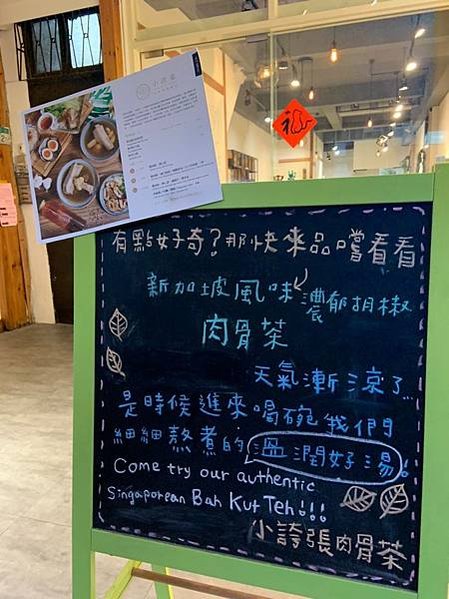 有點好奇?那快來品嚐看看
新加坡風味
濃郁胡椒
肉骨茶
天氣漸涼了...
是時候進來喝碗我們
細細熬煮的溫潤好湯!
Come try our authentic
Singaporean Bah Kut Teh!!!
小誇張肉骨茶